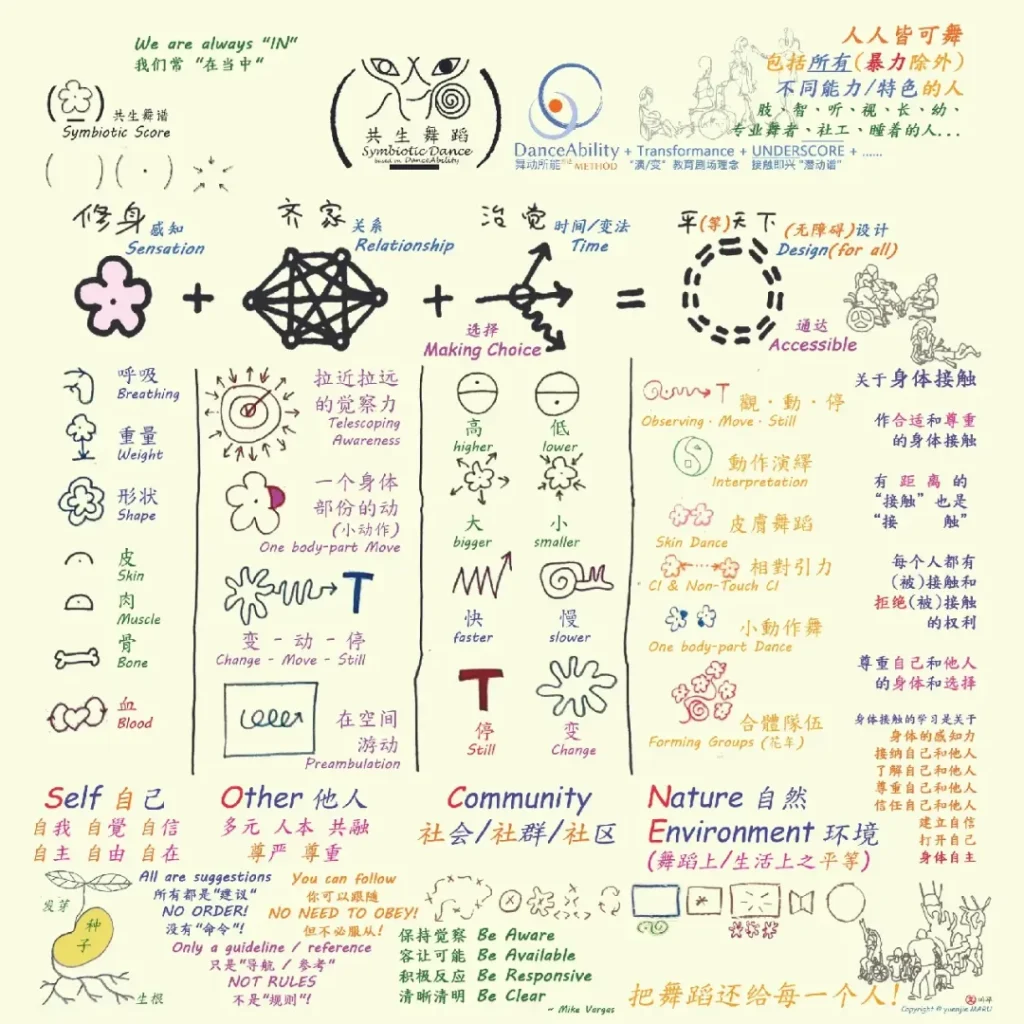 We are always "IN"
我们常 "在当中"
共生舞谱
Symbiotic Score
共生舞蹈
Symbiotic Dance
based on DanceAbility
DanceAbility + Transformance + UNDERSCORE + ......
舞动所能 METHOD "演/变" 教育剧场理念 接触即兴 "潜动谱"
人人皆可舞
包括所有(暴力除外)
不同能力/特色的人
肢、智、听、视、长、幼、
专业舞者、社工、睡着的人...
修身 感知
Sensation
齐家 关系
Relationship
治觉 时间/变法
Time
平(等)天下 (无障碍)设计
Design(for all)
+
+
=
选择
Making Choice
通达
Accessible
呼吸
Breathing
重量
Weight
形状
Shape
皮
Skin
肉
Muscle
骨
Bone
血
Blood
拉近拉远
的觉察力
Telescoping
Awareness
一个身体
部份的动
(小动作)
One body-part Move
T
变 - 动 - 停
Change - Move - Still
在空间
游动
Preambulation
高
higher
低
lower
大
bigger
小
smaller
快
faster
慢
slower
T
停
Still
变
Change
T
觀·動·停
Observing · Move · Still
動作演繹
Interpretation
皮膚舞蹈
Skin Dance
相對引力
CI & Non-Touch CI
小動作舞
One body-part Dance
合體隊伍
Forming Groups (花年)
关于身体接触
作合适和尊重
的身体接触
有 距 离 的
"接触"也是
"接 触"
每个人都有
(被)接触和
拒绝(被)接触
的权利
尊重自己和他人
的身体和选择
身体接触的学习是关于
身体的感知力
接纳自己和他人
了解自己和他人
尊重自己和他人
信任自己和他人
建立自信
打开自己
身体自主
Self 自己
自我 自覺 自信
自主 自由 自在
Other 他人
多元 人本 共融
尊严 尊重
Community
社会/社群/社区
Nature 自然
Environment 环境
(舞蹈上/生活上之平等)
发芽
种
子
生根
All are suggestions
所有都是"建议"
NO ORDER!
没有"命令"!
You can follow
你可以跟随
NO NEED TO OBEY!
但不必服从!
Only a guideline / reference
只是"导航 / 参考"
NOT RULES
不是"规则"!
保持觉察 Be Aware
容让可能 Be Available
积极反应 Be Responsive
清晰清明 Be Clear
~ Mike Vargas
把舞蹈还给每一个人!
Copyright © yuenjie MARU